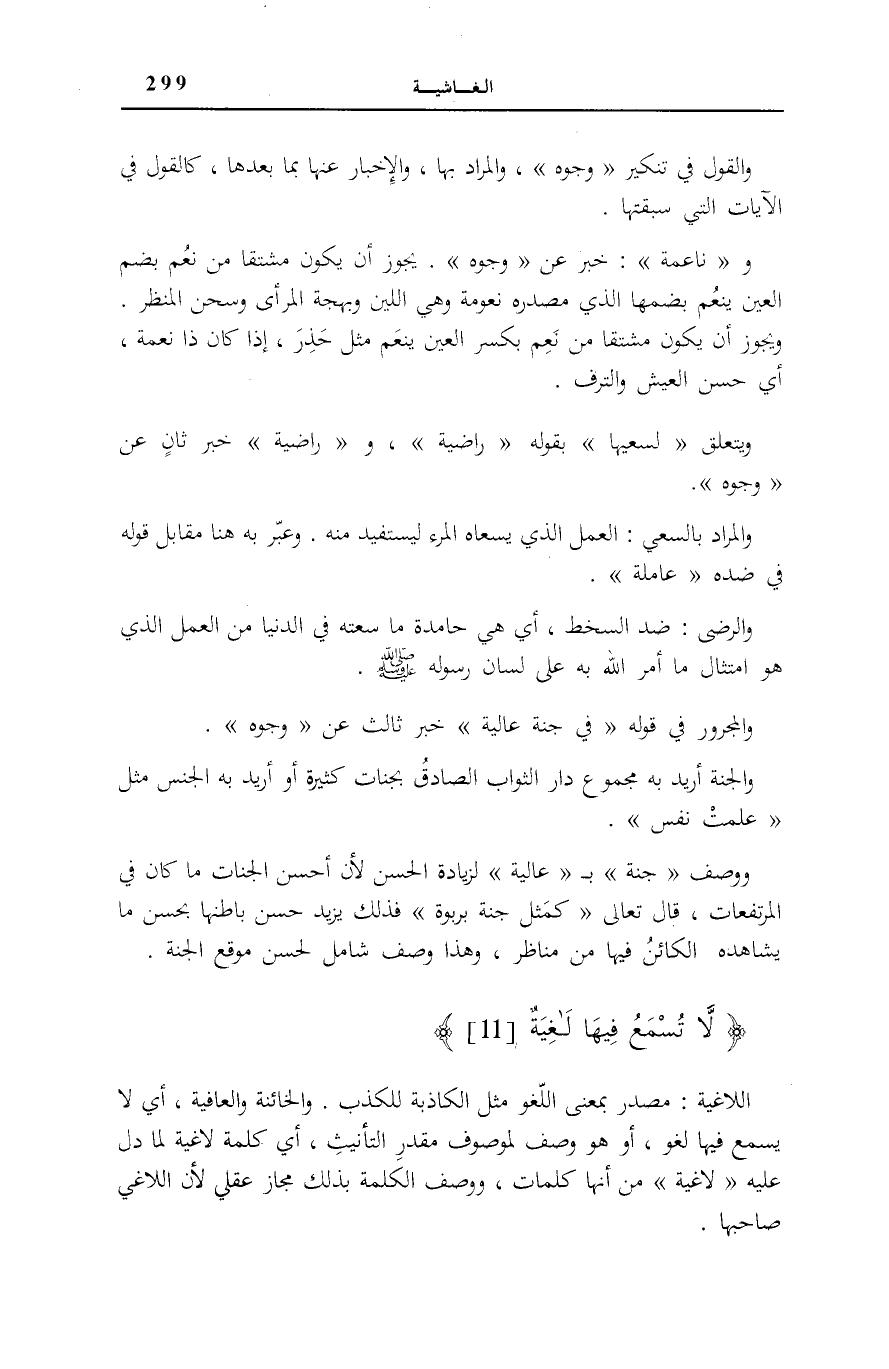 الغـاشيـة 299
والقول في تنكير « وجوه » ، والمراد بها ، والإخبار عنها بما بعدها ، كالقول في
الآيات التي سبقتها .
و « ناعمة » : خبر عن « وجوه » . يجوز أن يكون مشتقا من نعُم بضم
العين ينعُم بضمها الذي مصدره نعومة وهي اللين وبهجة المرأى وسحن المنظر .
ويجوز أن يكون مشتقا من نَعِم بكسر العين ينعَم مثل حَذِرَ ، إذا كان ذا نعمة ،
أي حسن العيش والترف .
ويتعلق « لسعيها » بقوله « راضية » ، و « راضية » خبر ثانٍ عن
« وجوه ».
والمراد بالسعي : العمل الذي يسعاه المرء ليستفيد منه . وعبّر به هنا مقابل قوله
في ضده « عاملة » .
والرضى : ضد السخط ، أي هي حامدة ما سعته في الدنيا من العمل الذي
هو امتثال ما أمر الله به على لسان رسوله ﷺ .
والمجرور في قوله « في جنة عالية » خبر ثالث عن « وجوه » .
والجنة أريد به مجموع دار الثواب الصادقُ بجنات كثيرة أو أريد به الجنس مثل
« علمتْ نفس » .
ووصف « جنة » بـ « عالية » لزيادة الحسن لأن أحسن الجنات ما كان في
المرتفعات ، قال تعالى « كمَثل جنة بربوة » فذلك يزيد حسن باطنها بحسن ما
يشاهده الكائنُ فيها من مناظر ، وهذا وصف شامل لحسن موقع الجنة .
﴿ لَّا تُسْمَعُ فِيهَا لَـٰغِيَةٌ [11] ﴾
اللاغية : مصدر بمعنى اللّغو مثل الكاذبة للكذب . والخائنة والعافية ، أي لا
يسمع فيها لغو ، أو هو وصف لموصوف مقدرِ التأنيثِ ، أي كلمة لاغية لما دل
عليه « لاغية » من أنها كلمات ، ووصف الكلمة بذلك مجاز عقلي لأن اللاغي
صاحبها .